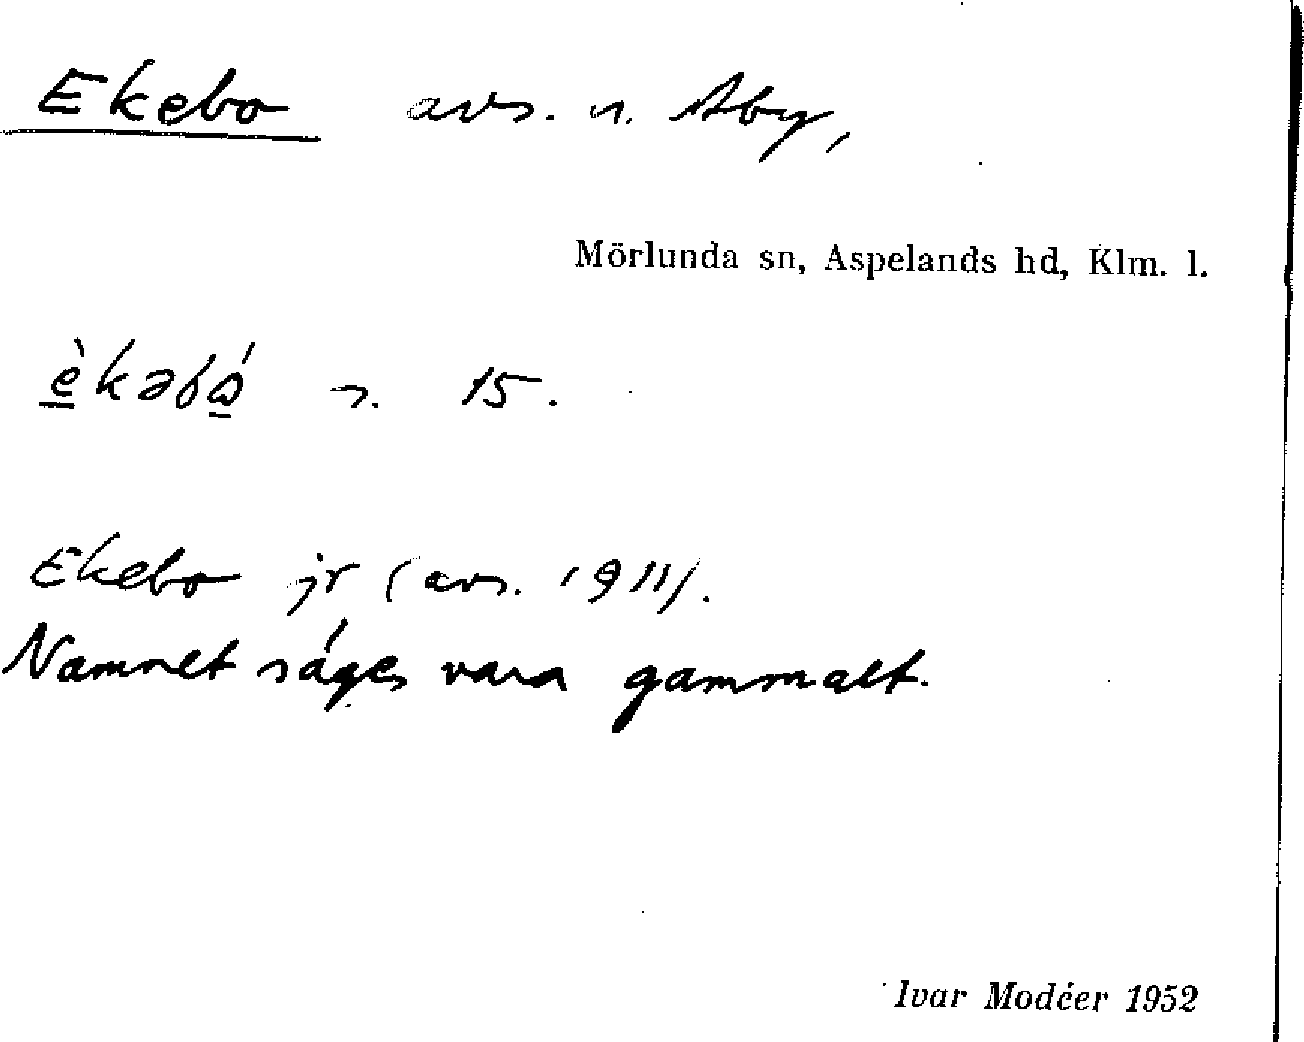 Ekebo avs. n. Åby,
Mörlunda sn, Aspelands hd, Klm. l.
è̱kəbɷ̱́ s. 15.
Ekebo jr (avs. 1911).
Namnet säges vara gammalt.
Ivar Modéer 1952